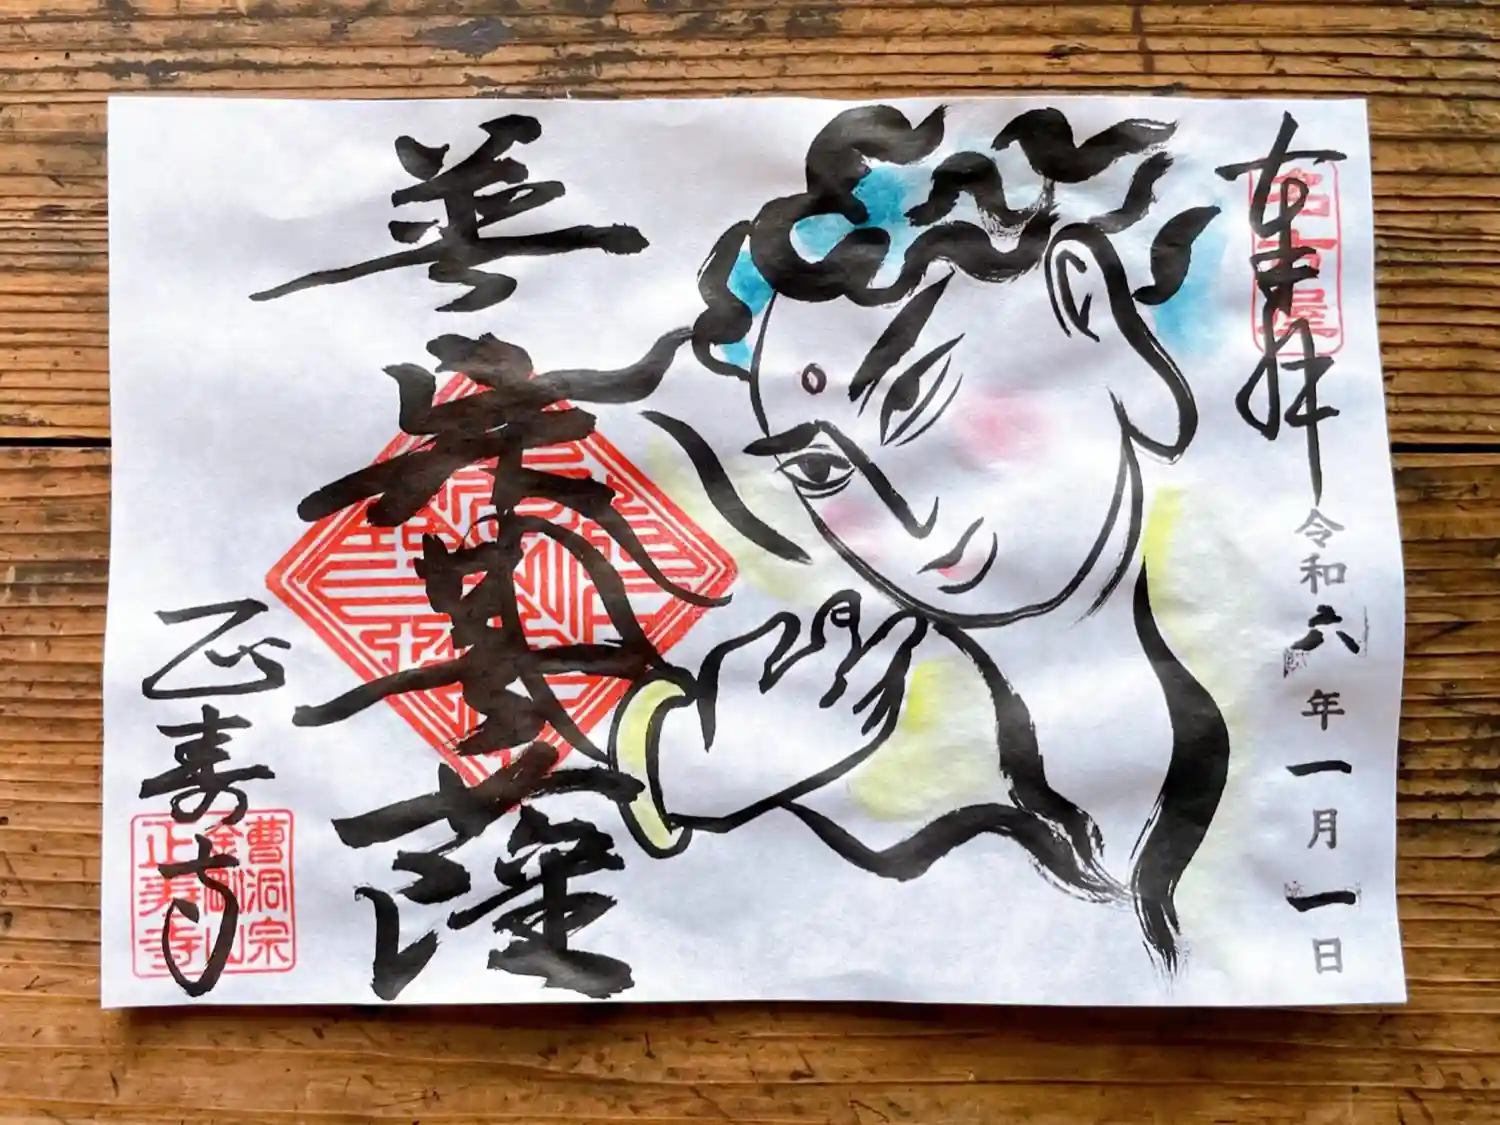 奉拝
名古屋
令和六年一月一日
普賢菩薩
正寿寺
曹洞宗
金剛山
正寿寺